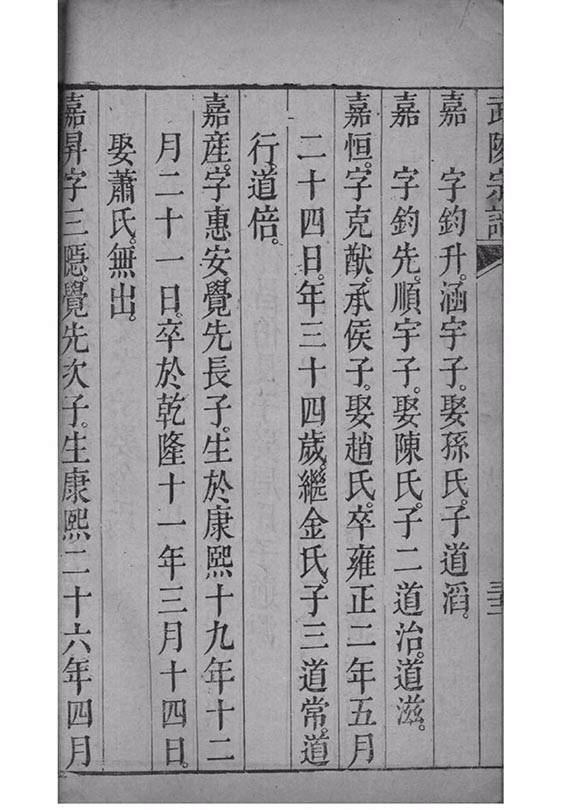 武陵宗譜
嘉　字鈞升。涵宇子。娶孫氏。子道滔。
嘉　字鈞先。順宇子。娶陳氏。子二道治。道滋。
嘉恒。字克猷。承侯子。娶趙氏。卒雍正二年五月
二十四日。年三十四歲。繼金氏。子三道常。道
行。道倍。
嘉產。字惠安。覺先長子。生於康熙十九年十二
月二十一日。卒於乾隆十一年三月十四日。
娶蕭氏。無出。
嘉昇字三隱。覺先次子。生康熙二十六年四月